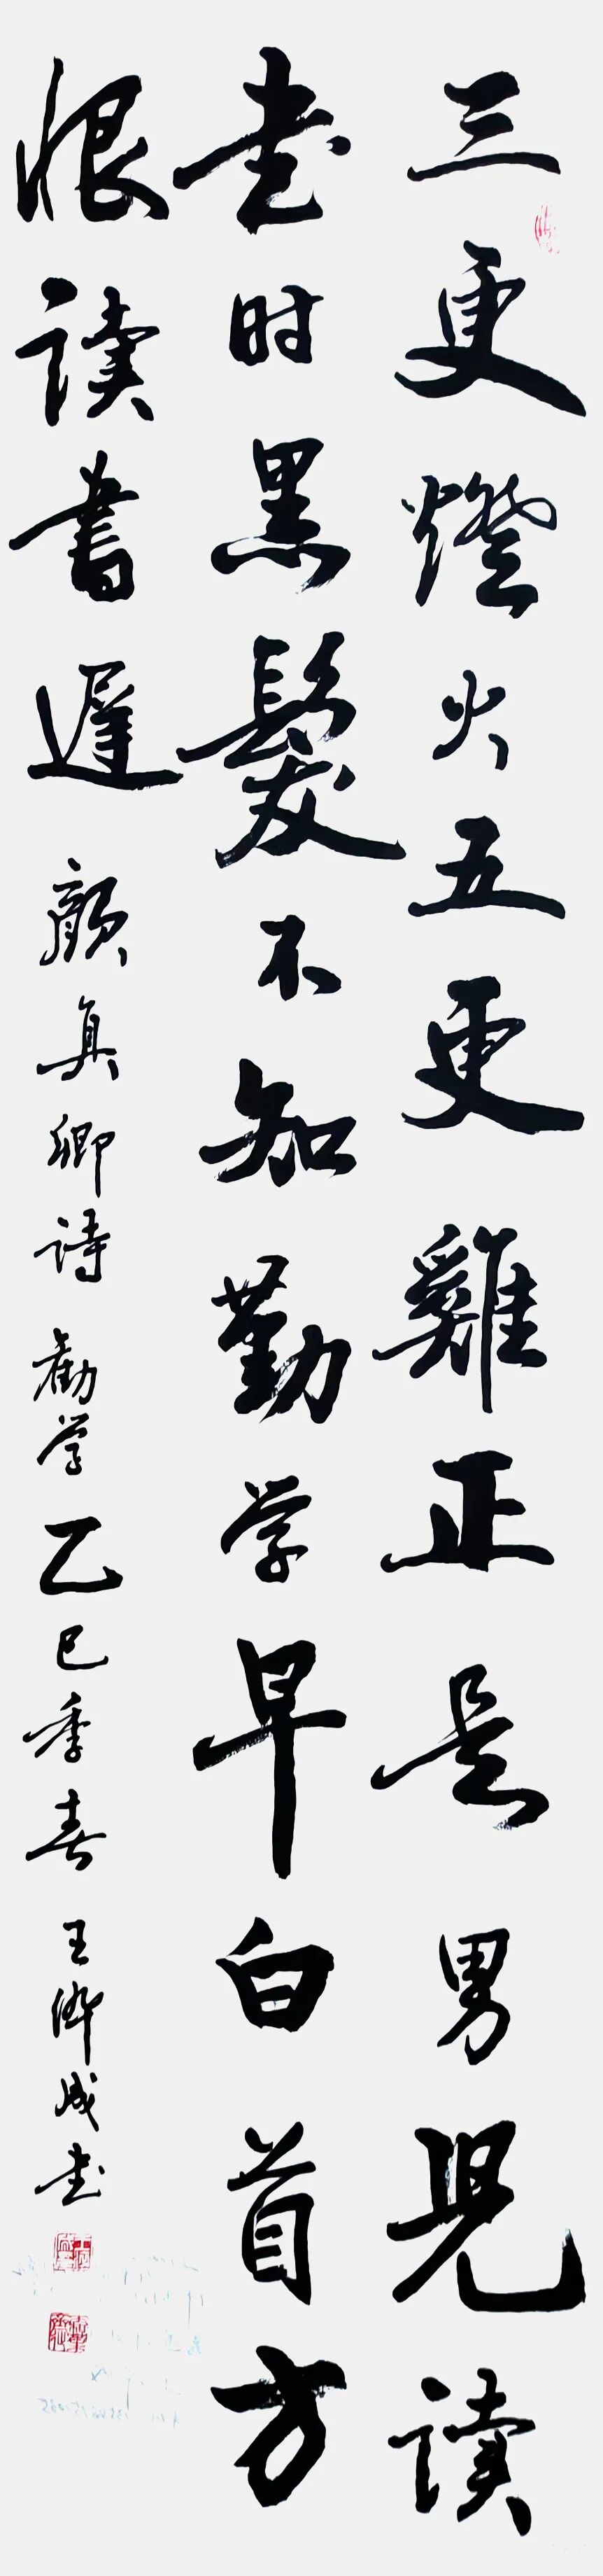 三更燈火五更雞正是男児讀
书时黑髮不知勤学早白首方
恨讀書遲 顏真卿詩 勸学 乙巳季春 王 成书